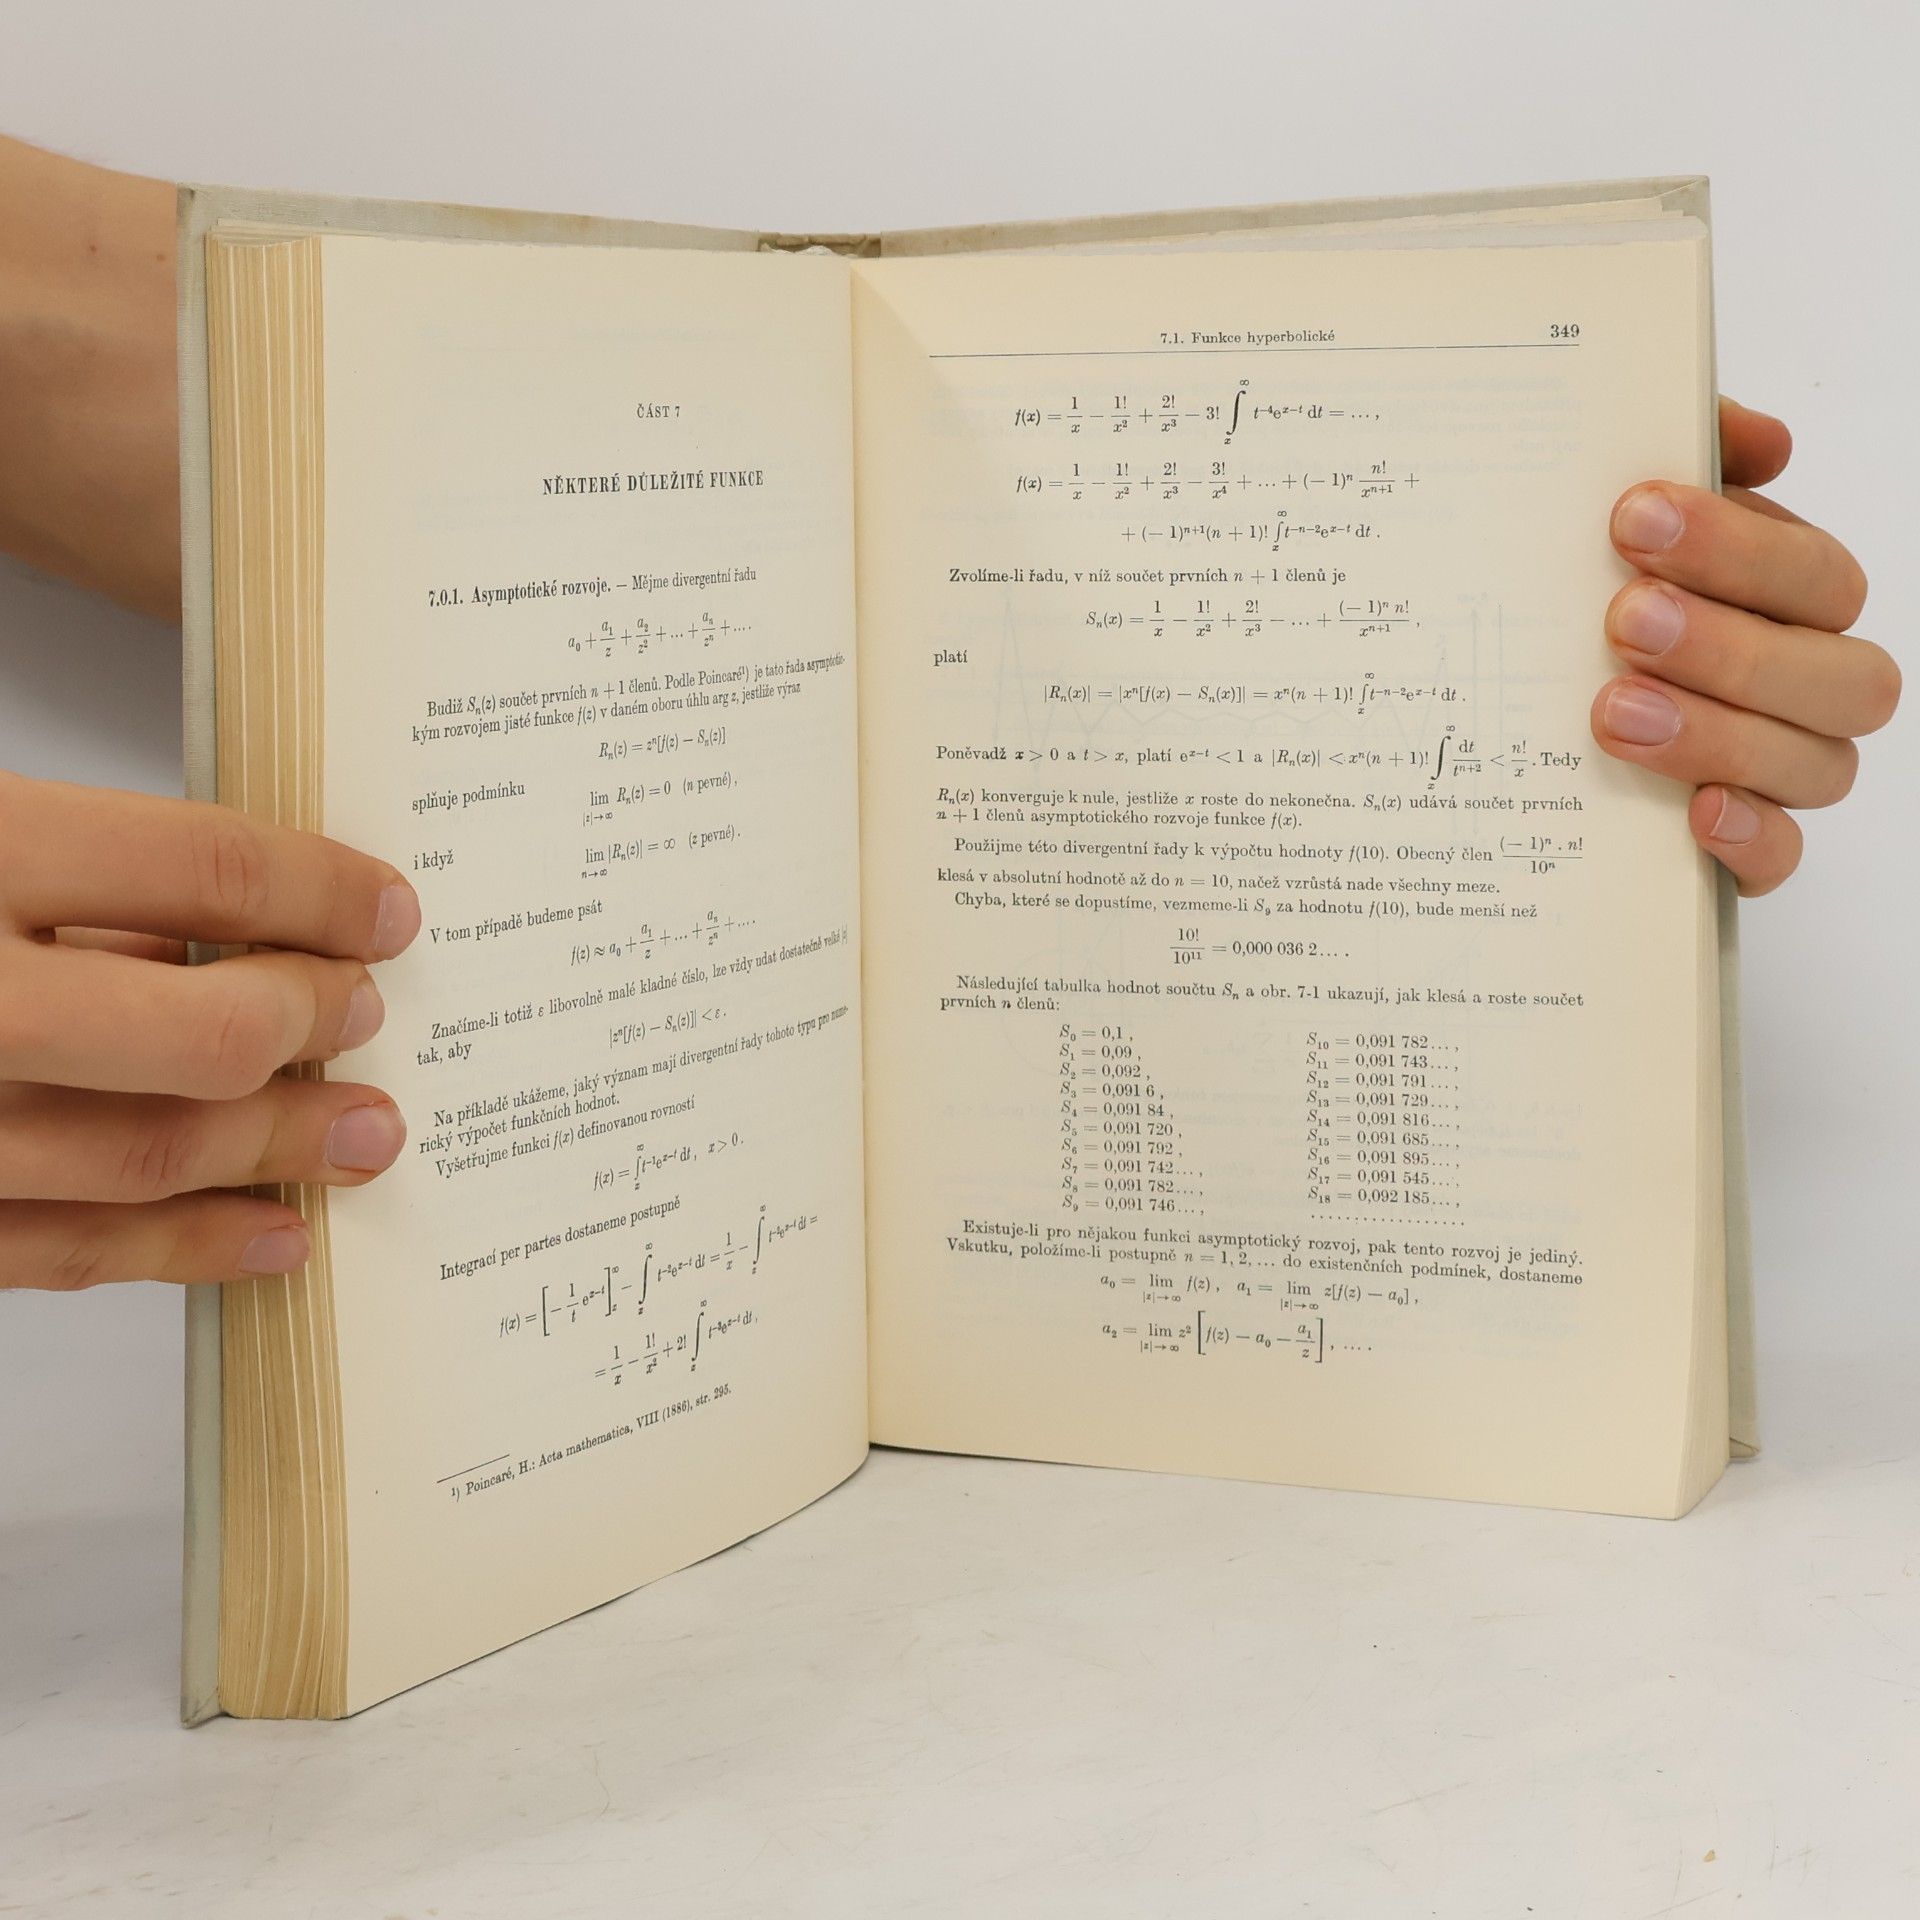 ČÁST 7
NĚKTERÉ DŮLEŽITÉ FUNKCE
7.0.1. Asymptotické rozvoje. — Mějme divergentní řadu
a₀ + a₁/z + a₂/z² + ... + aₙ/zⁿ + ....
Budiž Sₙ(z) součet prvních n + 1 členů. Podle Poincaré¹) je tato řada asymptotic-
kým rozvojem jisté funkce f(z) v daném oboru úhlu arg z, jestliže výraz
Rₙ(z) = zⁿ[f(z) − Sₙ(z)]
splňuje podmínku
lim |z|→∞ Rₙ(z) = 0 (n pevné),
i když
lim n→∞ |Rₙ(z)| = ∞ (z pevné).
V tom případě budeme psát
f(z) ≈ a₀ + a₁/z + ... + aₙ/zⁿ + ....
Značíme-li totiž ε libovolně malé kladné číslo, lze vždy udat dostatečně velké |z|
tak, aby
|zⁿ[f(z) − Sₙ(z)]| < ε.
Na příkladě ukážeme, jaký význam mají divergentní řady tohoto typu pro nume-
rický výpočet funkčních hodnot.
Vyšetřujme funkci f(x) definovanou rovností
f(x) = ∫ₓ^∞ t⁻¹eˣ⁻ᵗ dt, x > 0.
Integrací per partes dostaneme postupně
f(x) = [−1/t eˣ⁻ᵗ]ₓ^∞ − ∫ₓ^∞ t⁻²eˣ⁻ᵗ dt = 1/x − ∫ₓ^∞ t⁻²eˣ⁻ᵗ dt =
= 1/x − 1!/x² + 2! ∫ₓ^∞ t⁻³eˣ⁻ᵗ dt,
¹) Poincaré, H.: Acta mathematica, VIII (1886), str. 295.
7.1. Funkce hyperbolické 349
f(x) = 1/x − 1!/x² + 2!/x³ − 3! ∫ₓ^∞ t⁻⁴eˣ⁻ᵗ dt = ...,
f(x) = 1/x − 1!/x² + 2!/x³ − 3!/x⁴ + ... + (− 1)ⁿ n!/xⁿ⁺¹ +
+ (− 1)ⁿ⁺¹(n + 1)! ∫ₓ^∞ t⁻ⁿ⁻²eˣ⁻ᵗ dt.
Zvolíme-li řadu, v níž součet prvních n + 1 členů je
Sₙ(x) = 1/x − 1!/x² + 2!/x³ − ... + (− 1)ⁿ n!/xⁿ⁺¹,
platí
|Rₙ(x)| = |xⁿ[f(x) − Sₙ(x)]| = xⁿ(n + 1)! ∫ₓ^∞ t⁻ⁿ⁻²eˣ⁻ᵗ dt.
Poněvadž x > 0 a t > x, platí eˣ⁻ᵗ < 1 a |Rₙ(x)| < xⁿ(n + 1)! ∫ₓ^∞ dt/tⁿ⁺² < n!/x. Tedy
Rₙ(x) konverguje k nule, jestliže x roste do nekonečna. Sₙ(x) udává součet prvních
n + 1 členů asymptotického rozvoje funkce f(x).
Použijme této divergentní řady k výpočtu hodnoty f(10). Obecný člen (− 1)ⁿ . n!/10ⁿ
klesá v absolutní hodnotě až do n = 10, načež vzrůstá nade všechny meze.
Chyba, které se dopustíme, vezmeme-li S₉ za hodnotu f(10), bude menší než
10!/10¹¹ = 0,000 036 2....
Následující tabulka hodnot součtu Sₙ a obr. 7-1 ukazují, jak klesá a roste součet
prvních n členů:
S₀ = 0,1,
S₁ = 0,09,
S₂ = 0,092,
S₃ = 0,091 6,
S₄ = 0,091 84,
S₅ = 0,091 720,
S₆ = 0,091 792,
S₇ = 0,091 742...,
S₈ = 0,091 782...,
S₉ = 0,091 746...,
S₁₀ = 0,091 782...,
S₁₁ = 0,091 743...,
S₁₂ = 0,091 791...,
S₁₃ = 0,091 729...,
S₁₄ = 0,091 816...,
S₁₅ = 0,091 685...,
S₁₆ = 0,091 895...,
S₁₇ = 0,091 545...,
S₁₈ = 0,092 185...,
..................
Existuje-li pro nějakou funkci asymptotický rozvoj, pak tento rozvoj je jediný.
Vskutku, položíme-li postupně n = 1, 2, ... do existenčních podmínek, dostaneme
a₀ = lim |z|→∞ f(z), a₁ = lim |z|→∞ z[f(z) − a₀],
a₂ = lim |z|→∞ z² [f(z) − a₀ − a₁/z], ....